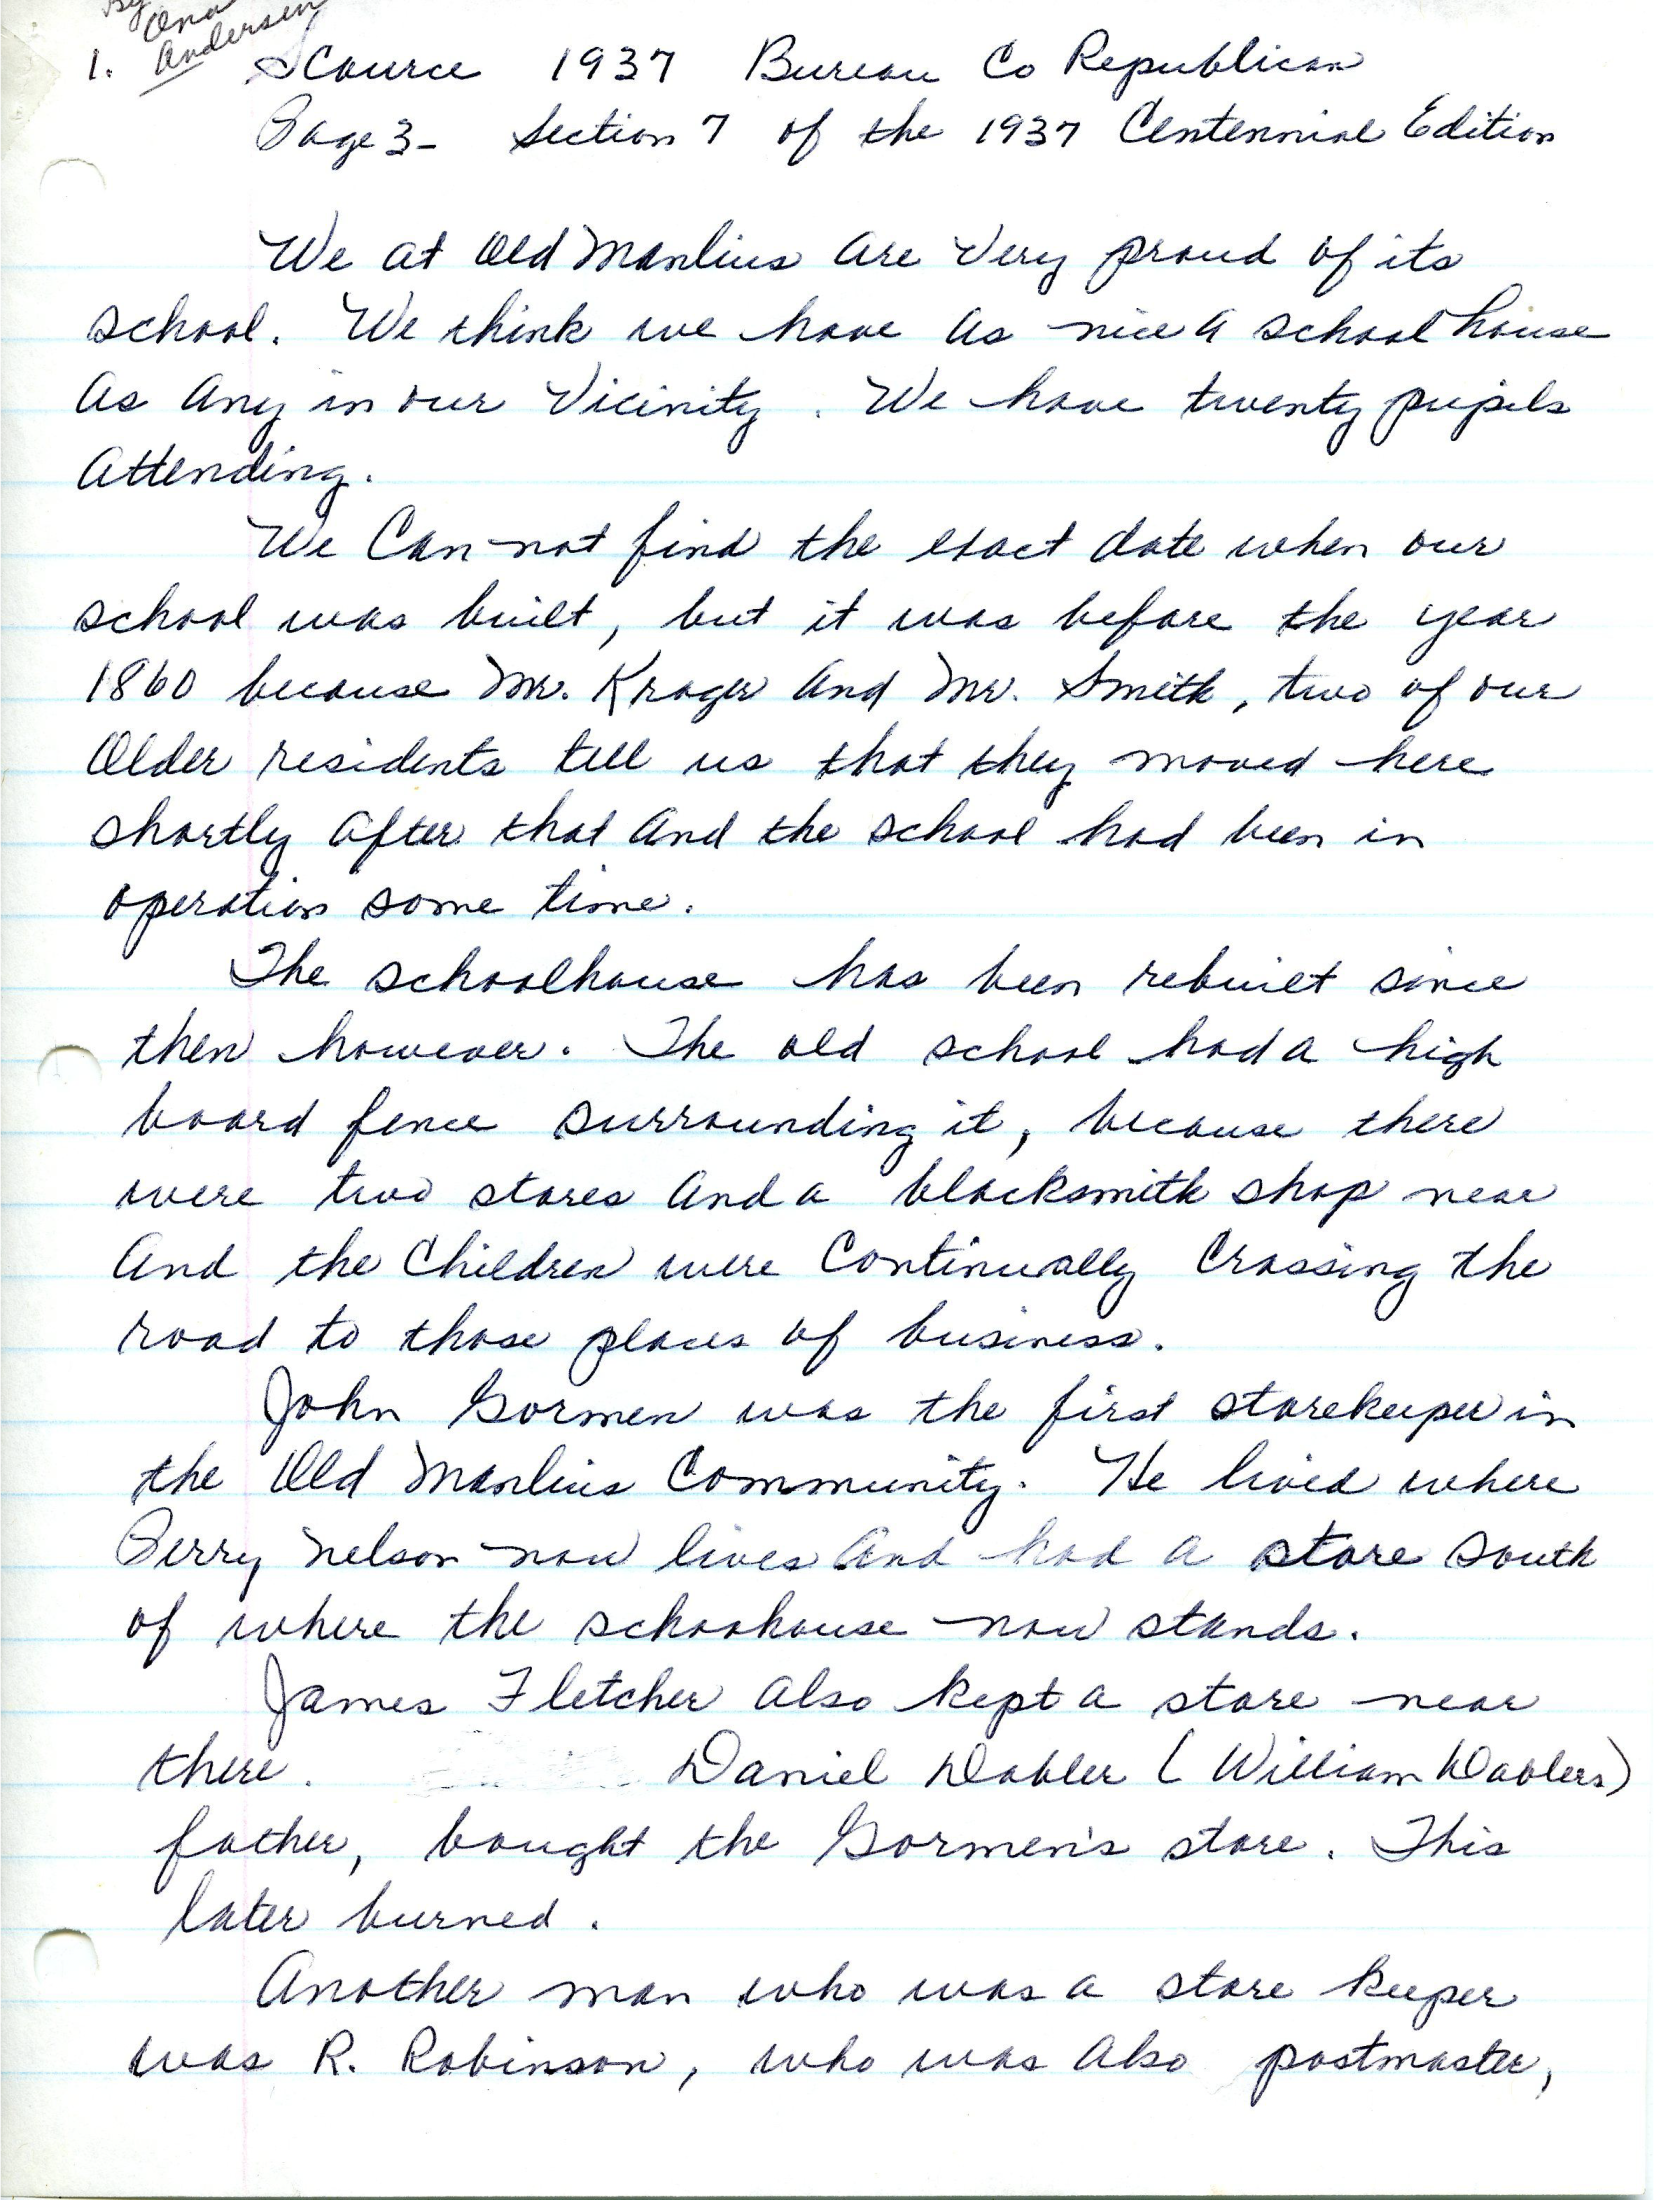 By
Ona
Andersen
1. Scource 1937 Bureau Co Republican
Page 3- Section 7 of the 1937 Centennial Edition
We at Old Manlius are very proud of its
school. We think we have as nice a school house
as any in our vicinity. We have twenty pupils
attending.
We can not find the exact date when our
school was built, but it was before the year
1860 because Mr. Kroger and Mr. Smith, two of our
older residents tell us that they moved here
shortly after that and the school had been in
operation some time.
The schoolhouse has been rebuilt since
then however. The old school had a high
board fence surrounding it, because there
were two stores and a blacksmith shop near
and the children were continually crossing the
road to those places of business.
John Gormen was the first storekeeper in
the Old Manlius Community. He lived where
Perry Nelson now lives and had a store south
of where the schoohouse now stands.
James Fletcher also kept a store near
there. Daniel Dabler (William Dablers)
father, bought the Gormen's store. This
later burned.
Another man who was a store keeper
was R. Robinson, who was also postmaster,